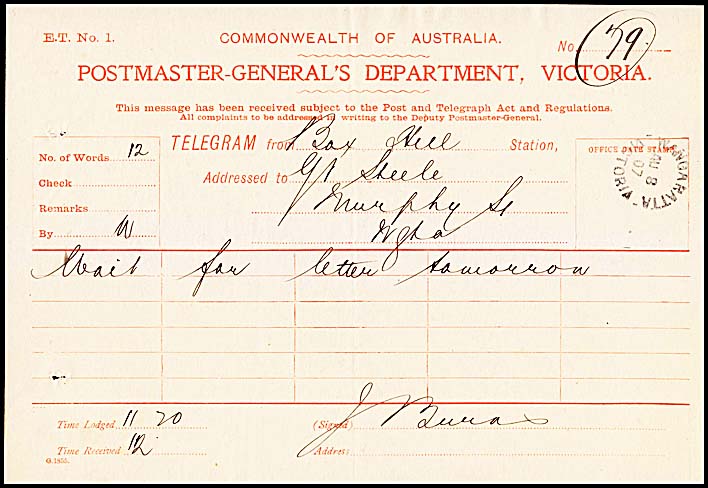 E.T. No. 1.
COMMONWEALTH OF AUSTRALIA.
No. 79.
POSTMASTER-GENERAL'S DEPARTMENT, VICTORIA.
This message has been received subject to the Post and Telegraph Act and Regulations.
All complaints to be addressed in writing to the Deputy Postmaster-General.
TELEGRAM from Box Hill Station,
No. of Words 12
Check
Remarks
By W
Addressed to Steele
Murphy St
Wgta
OFFICE DATE STAMP
WANGARATTA
8
07
VICTORIA
Wait for letter tomorrow
Time Lodged 11 20
(Signed) J Burns
Time Received 12
Address
G.1855.